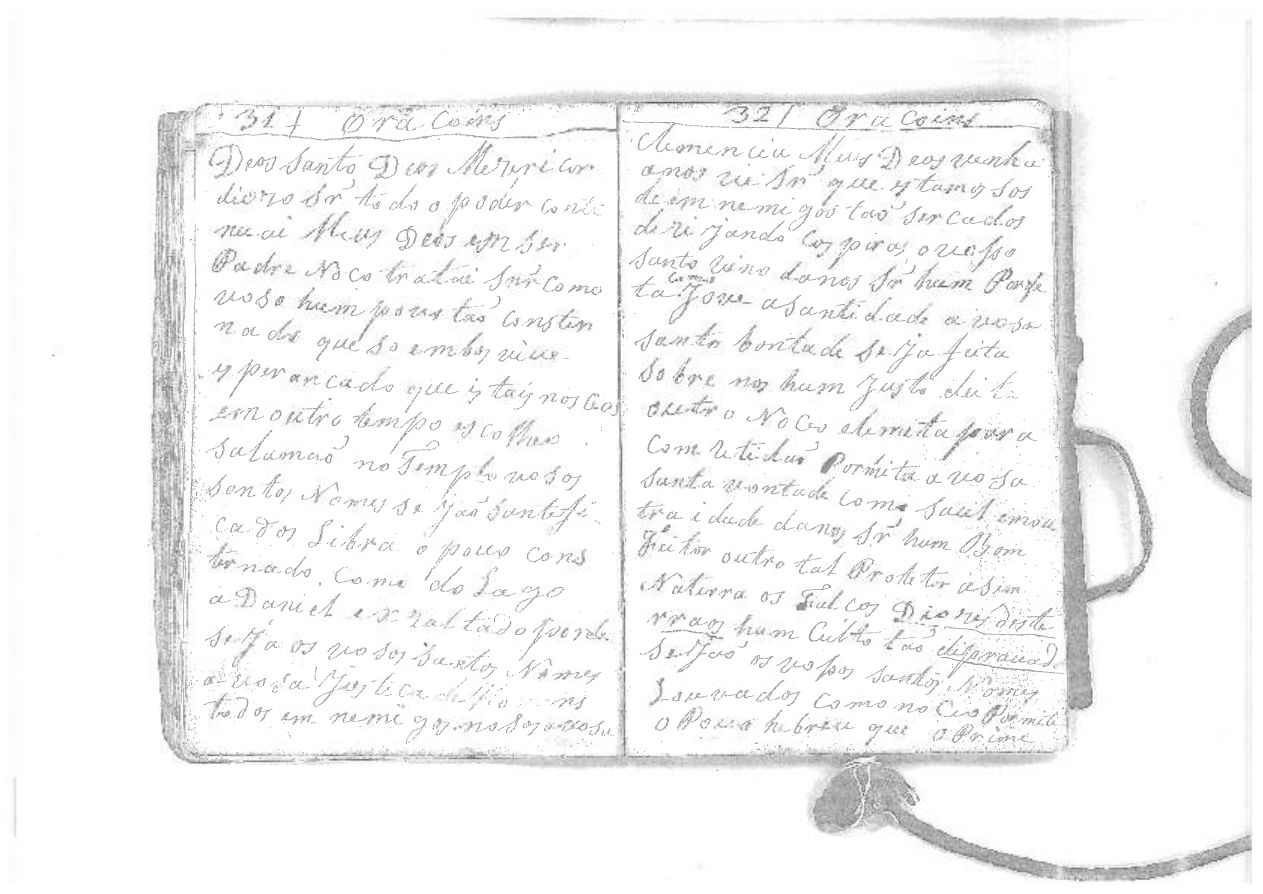 31 / Orã Coins
Deos Santo Deos Mezericor
diozo Sr̃ todo o podér conti
nuai Meus Deos em ser
Padre Noço tratai Sñr como
voso hum povo tao conster
nado que so em bos vive
esperancado que istais nos Ceos
em outro tempo escolheo
salamaõ no Templo vosos
santos Nomes se Jaõ santefi
cados Libra o povo cons
ternado. Como do Lago
a Daniel exzaltado
se Ja os vosos santos Nomes
a vosa Justica
todos em nemigos nosos a vosa
32 / Ora Coins
Clemencia Meus Deos venha
anos ve Sr̃ que estamos sos
de em nemigos taõ sercados
dezijando Cospiras o vosso
santo reino danos Sr̃ hum Porfe
ta Como Jove a santidade a vosa
santa bontade se Ja feita
Sobre nos hum Justo
outro No Ceo para
Com Pormita a vosa
santa vontade como
tra idade danos Sr̃ hum Bom
Feitor outro tal Protetor asim
Naterra os Falcos Diozes deste
rraos hum Culto taõ depravado
se Jaõ os vosos santos Nomes
Louvados como no Ceo Pormiti
o Povo hebreu que o Prime